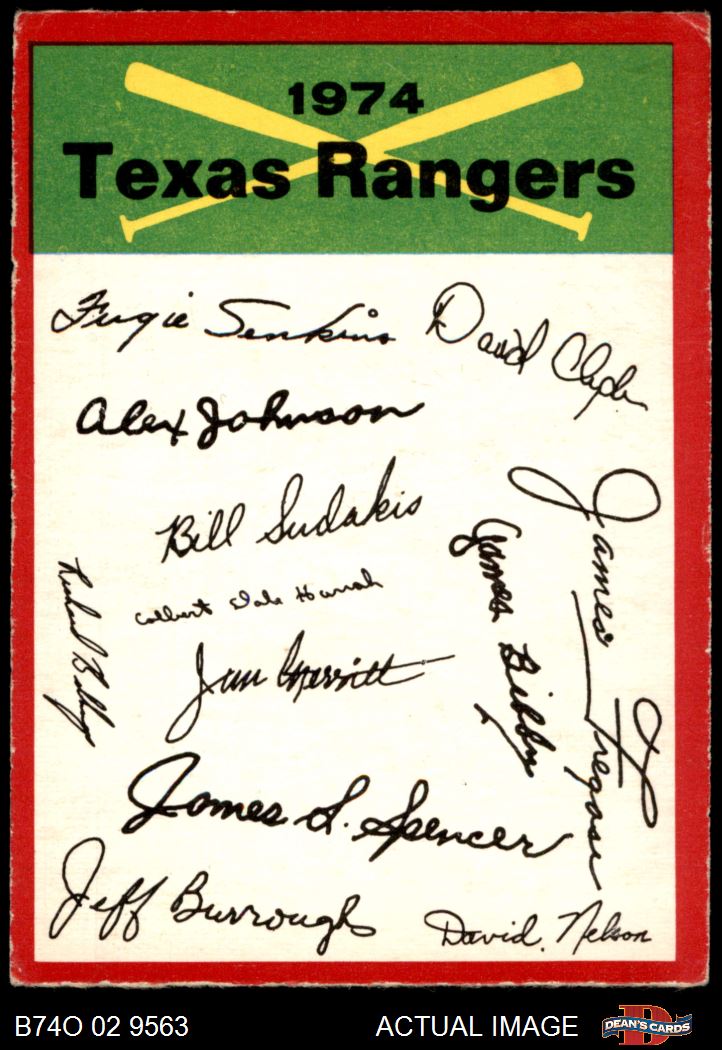 1974
Texas Rangers
Fergie Jenkins
David Clyde
Alex Johnson
Bill Sudakis
James Fregosi
James Bibby
Richard Billings
Colbert Dale Harrah
Jim Merritt
James L. Spencer
Jeff Burroughs
David. Nelson
B74O 02 9563
ACTUAL IMAGE
DEAN'S CARDS